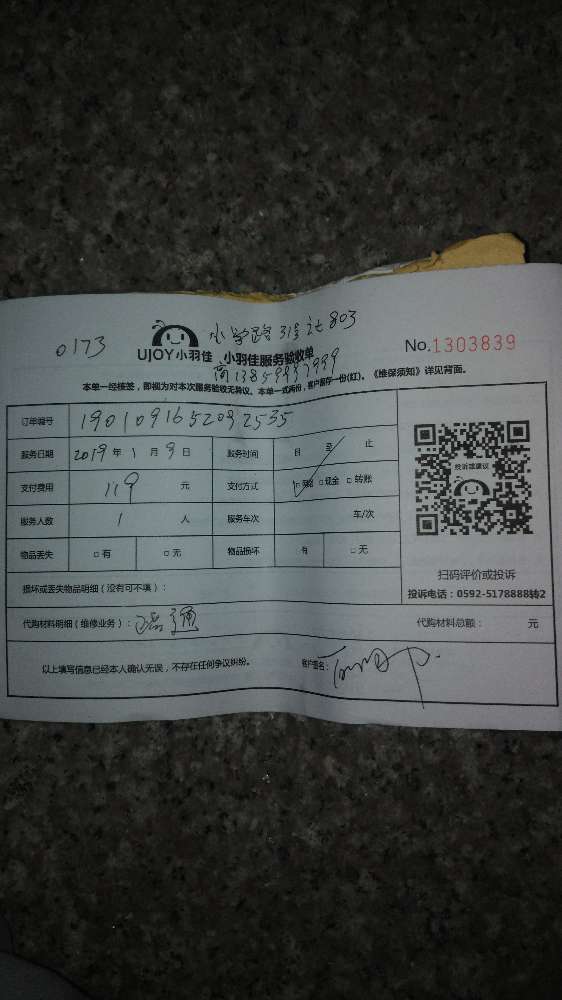 0173
小学路31号之803
UJOY小羽佳 小羽佳服务验收单 No.1303839
本单一经核签，即视为对本次服务验收无异议。本单一式两份，客户留存一份(红)。《维保须知》详见背面。
订单编号 1901091652092535
服务日期 2019年1月9日 服务时间 日 至 止
支付费用 119 元 支付方式 □现金 □转账
服务人数 1 人 服务车次 车/次
物品丢失 □有 □无 物品损坏 有 □无
投诉或建议
扫码评价或投诉
投诉电话：0592-5178888转2
损坏或丢失物品明细（没有可不填）：
代购材料明细（维修业务）： 代购材料总额： 元
以上填写信息已经本人确认无误，不存在任何争议纠纷。 客户签名：